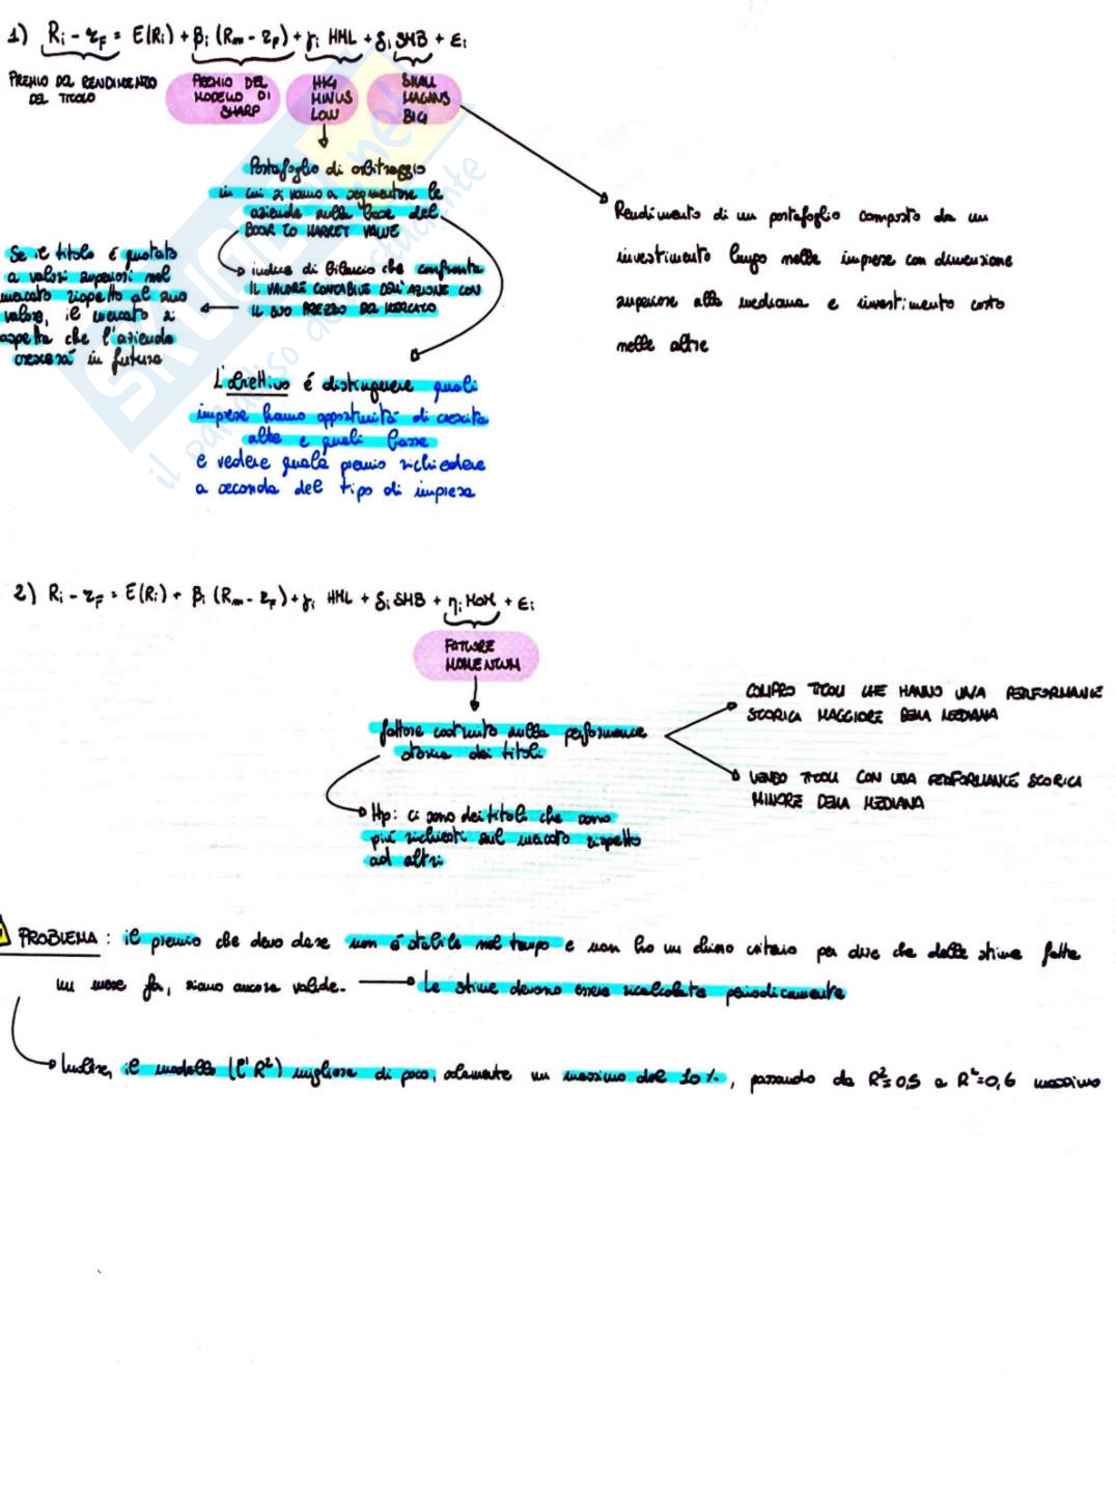 1) Ri - rF = E(Ri) + βi (Rm - rF) + γi HML + δi SMB + εi
PREMIO DEL RENDIMENTO
DEL TITOLO
PREMIO DEL
MODELLO DI
SHARP
HIG
MINUS
LOW
SMALL
MAGINS
BIG
Portafoglio di arbitraggio
in cui si vanno a segmentare le
aziende sulla base del
BOOK TO MARKET VALUE
indice di bilancio che confronta
IL VALORE CONTABILE DELL'AZIONE CON
IL SUO PREZZO DEL MERCATO
Se il titolo é quotato
a valori superiori nel
mercato rispetto al suo
valore, il mercato si
aspetta che l'azienda
crescerá in futuro
L'obiettivo é distinguere quali
imprese hanno opportunitá di crescita
alte e quali basse
e vedere quale premio richiedere
a seconda del tipo di impresa
Rendimento di un portafoglio composto da un
investimento lungo nelle imprese con dimensione
superiore alla mediana e investimento corto
nelle altre
2) Ri - rF = E(Ri) + βi (Rm - rF) + γi HML + δi SMB + ηi MOM + εi
FATTORE
MOMENTUM
fattore costruito sulla performance
storica dei titoli
COMPRO TITOLI CHE HANNO UNA PERFORMANCE
STORICA MAGGIORE DELLA MEDIANA
VENDO TITOLI CON UNA PERFORMANCE STORICA
MINORE DELLA MEDIANA
Hp: ci sono dei titoli che sono
piú richiesti sul mercato rispetto
ad altri
PROBLEMA: il premio che devo dare non é stabile nel tempo e non ho un chiaro criterio per dire che delle stime fatte
un mese fa, siano ancora valide. Le stime devono essere ricalcolate periodicamente
Inoltre, il modello (l'R²) migliora di poco, solamente un massimo del 10%, passando da R²=0,5 a R²=0,6 massimo